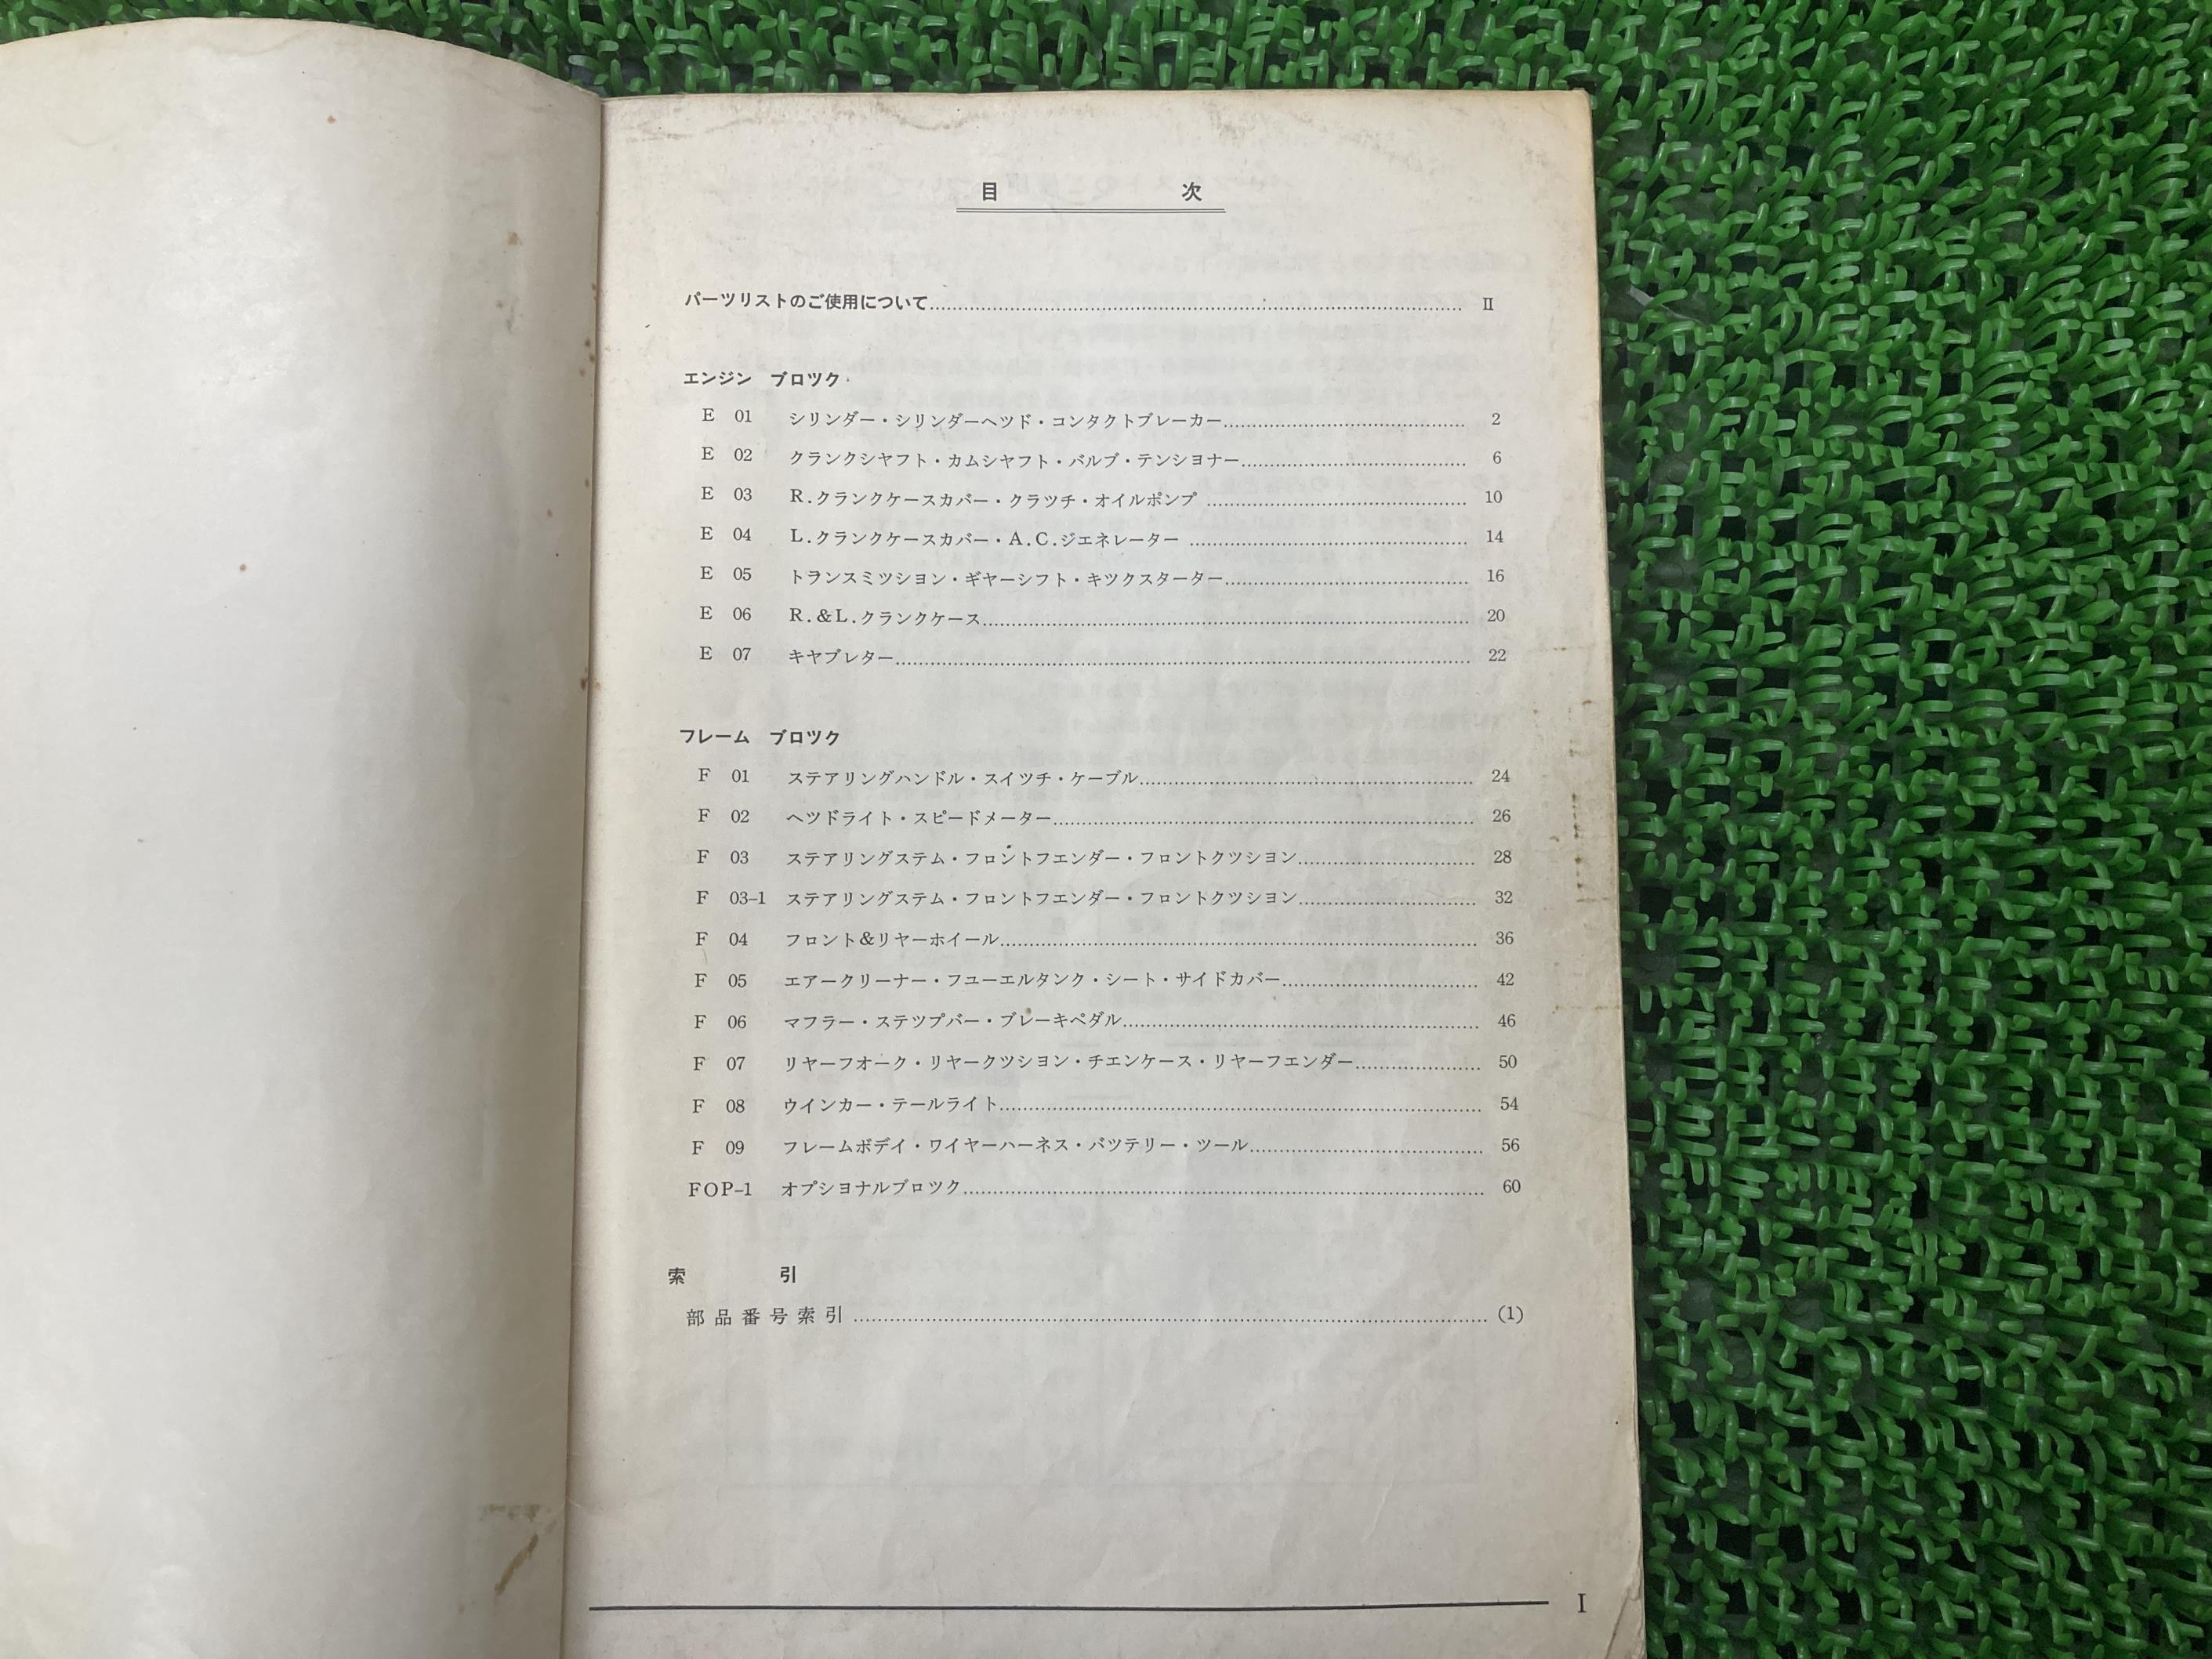 目 次
パーツリストのご使用について................ II
エンジン ブロツク
E 01 シリンダー・シリンダーヘツド・コンタクトブレーカー................ 2
E 02 クランクシヤフト・カムシヤフト・バルブ・テンシヨナー................ 6
E 03 R.クランクケースカバー・クラツチ・オイルポンプ ................ 10
E 04 L.クランクケースカバー・A.C.ジエネレーター ................ 14
E 05 トランスミツシヨン・ギヤーシフト・キツクスターター................ 16
E 06 R.&L.クランクケース................ 20
E 07 キヤブレター................ 22
フレーム ブロツク
F 01 ステアリングハンドル・スイツチ・ケーブル................ 24
F 02 ヘツドライト・スピードメーター................ 26
F 03 ステアリングステム・フロントフエンダー・フロントクツシヨン................ 28
F 03-1 ステアリングステム・フロントフエンダー・フロントクツシヨン................ 32
F 04 フロント&リヤーホイール................ 36
F 05 エアークリーナー・フユーエルタンク・シート・サイドカバー................ 42
F 06 マフラー・ステツプバー・ブレーキペダル................ 46
F 07 リヤーフオーク・リヤークツシヨン・チエンケース・リヤーフエンダー................ 50
F 08 ウインカー・テールライト................ 54
F 09 フレームボデイ・ワイヤーハーネス・バツテリー・ツール................ 56
FOP-1 オプシヨナルブロツク................ 60
索 引
部品番号索引 ................ (1)
I